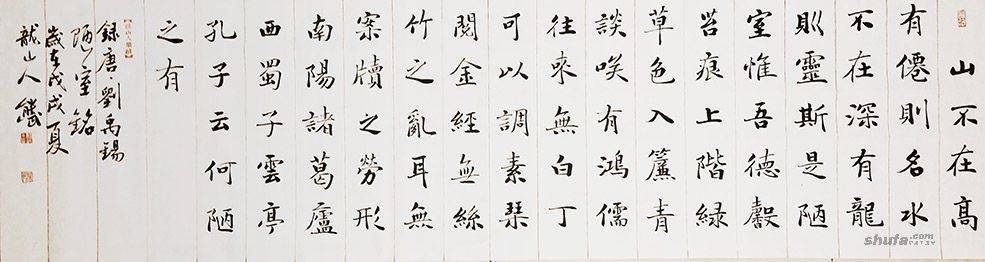 山不在高
有僊則名水
不在深有龍
則靈斯是陋
室惟吾德馨
苔痕上階緑
草色入簾青
談咲有鴻儒
往來無白丁
可以調素琴
閱金經無絲
竹之亂耳無
案牘之勞形
南陽諸葛廬
西蜀子雲亭
孔子云何陋
之有
錄唐劉禹錫
陋室銘
歲在戊戌夏
龍山人
shufa.com